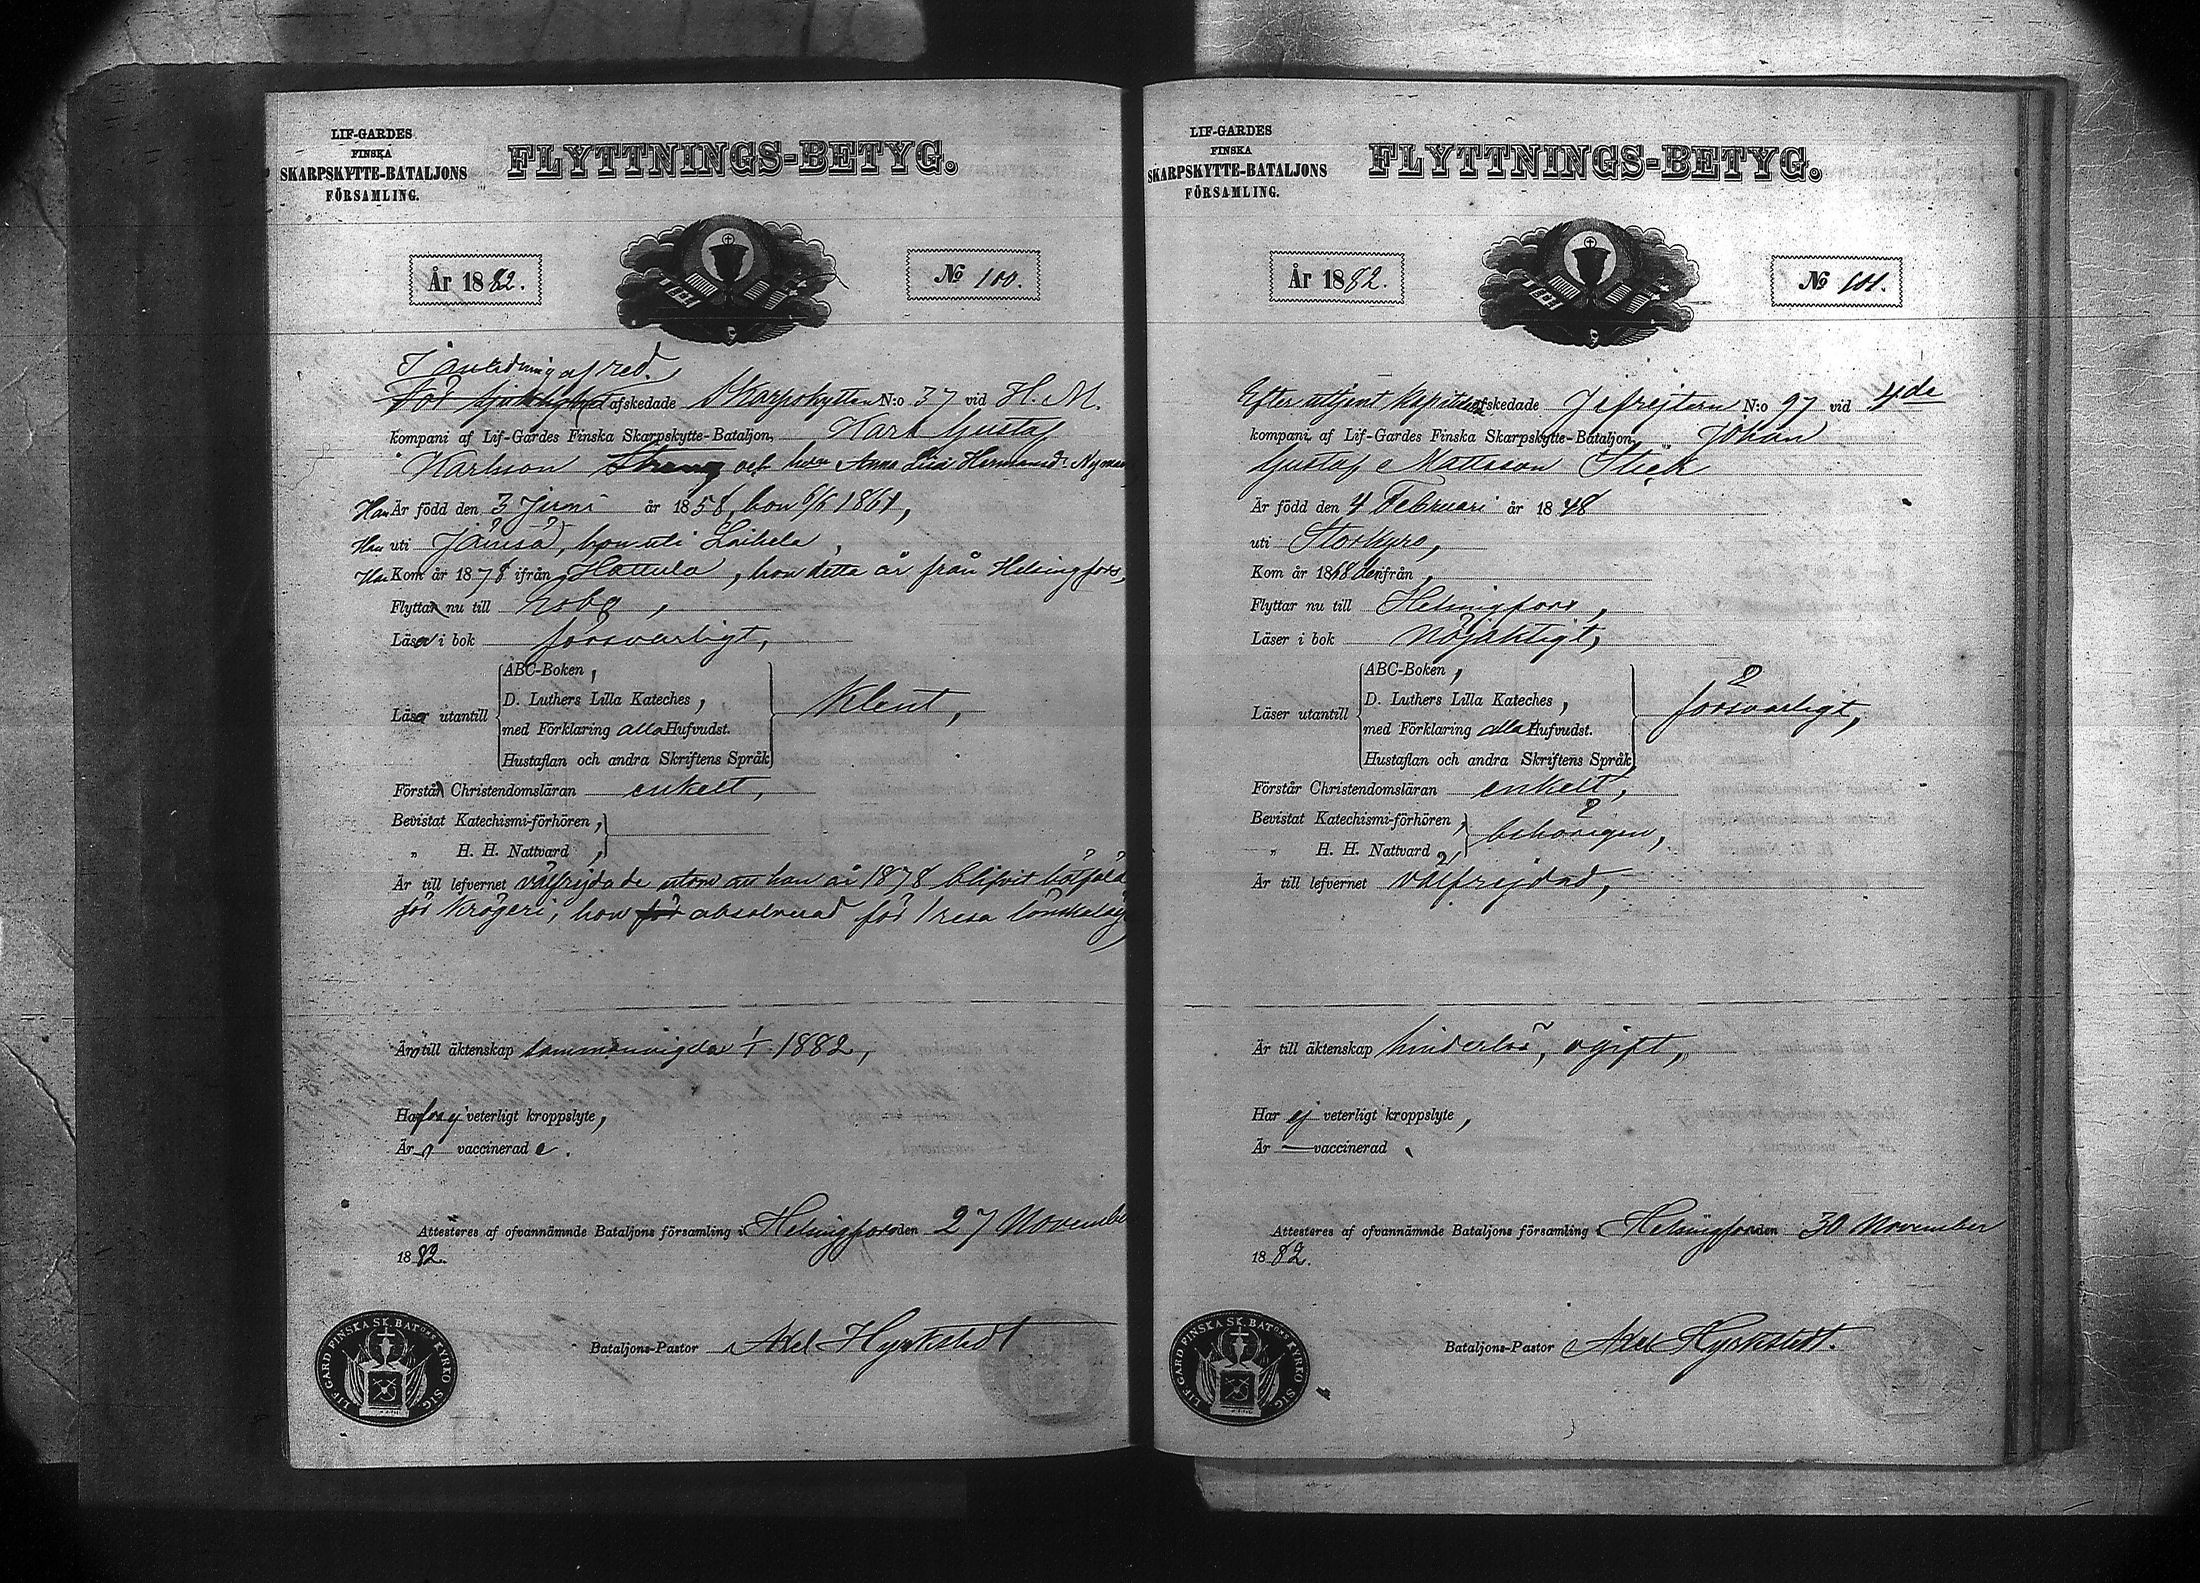 LIF-GARDES
FINSKA
SKARPSKYTTE-BATALJONS
FÖRSAMLING.
FLYTTNINGS-BETYG.
År 1882.
No 100.
I anledning af red.
För sjuklighet afskedade Skarpskytten N:o 37 vid H. M.
kompani af Lif-Gardes Finska Skarpskytte-Bataljon, Karl Gustaf
Karlsson Strang och hon Anna Lisa Hermansd:r Nyman
Han Är född den 3 Juni år 1858, hon 6/6 1861,
Han uti Jämsä, hon uti Loibela,
Han Kom år 1878 ifrån Hattula, hon detta år från Helsingfors,
Flytta nu till
Läsa i bok försvarligt,
Läsa utantill
ABC-Boken,
D. Luthers Lilla Kateches,
med Förklaring alla Hufvudst.
Hustaflan och andra Skriftens Språk
Klent,
Förstå Christendomsläran enkelt,
Bevistat Katechismi-förhören,
" H. H. Nattvard,
Är till lefvernet välfrejdade utom att han år 1878 blifvit bötfäld
för krögeri, hon för absolverad för 1 resa lönskaläge
Äro till äktenskap sammanvigda 1882,
Hafva ej veterligt kroppslyte,
Är o vaccinerade.
Attesteras af ofvannämnde Bataljons församling i Helsingfors den 27 November
1882.
Bataljons-Pastor Axel Hyrkstedt
LIF GARD FINSKA SK. BAT:ONS KYRKO SIG.
LIF-GARDES
FINSKA
SKARPSKYTTE-BATALJONS
FÖRSAMLING.
FLYTTNINGS-BETYG.
År 1882.
No 101.
Efter uttjent kapitulat. afskedade Gefrejtern N:o 97 vid 4de
kompani af Lif-Gardes Finska Skarpskytte-Bataljon, Johan
Gustaf Mattsson Stick
Är född den 4 Februari år 1848
uti Storkyro,
Kom år 1868 den ifrån,
Flyttar nu till Helsingfors,
Läser i bok nöjaktigt,
Läser utantill
ABC-Boken,
D. Luthers Lilla Kateches,
med Förklaring alla Hufvudst.
Hustaflan och andra Skriftens Språk
försvarligt,
Förstår Christendomsläran enkelt,
Bevistat Katechismi-förhören,
" H. H. Nattvard,
behörigen,
Är till lefvernet välfrejdad,
Är till äktenskap hinderlös, ogift,
Har ej veterligt kroppslyte,
Är — vaccinerad.
Attesteras af ofvannämnde Bataljons församling i Helsingfors den 30 November
1882.
Bataljons-Pastor Axel Hyrkstedt.
LIF GARD FINSKA SK. BAT:ONS KYRKO SIG.